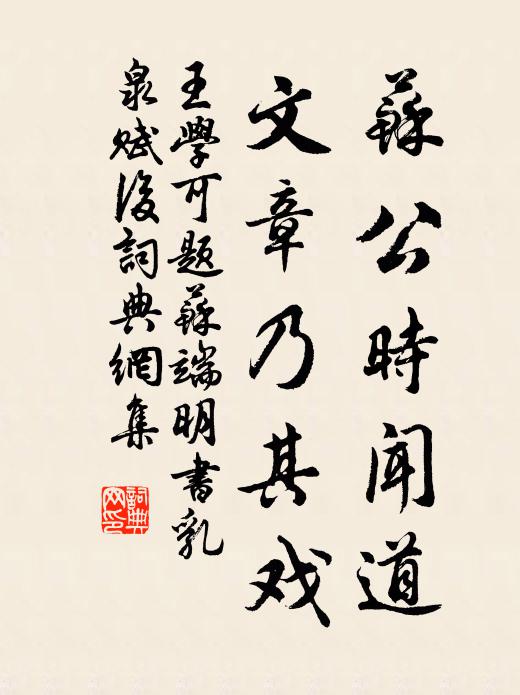 蘇公時聞道
文章乃其戏
王學可題蘇端明書乳
泉赋後詞典網集
詞典
网印